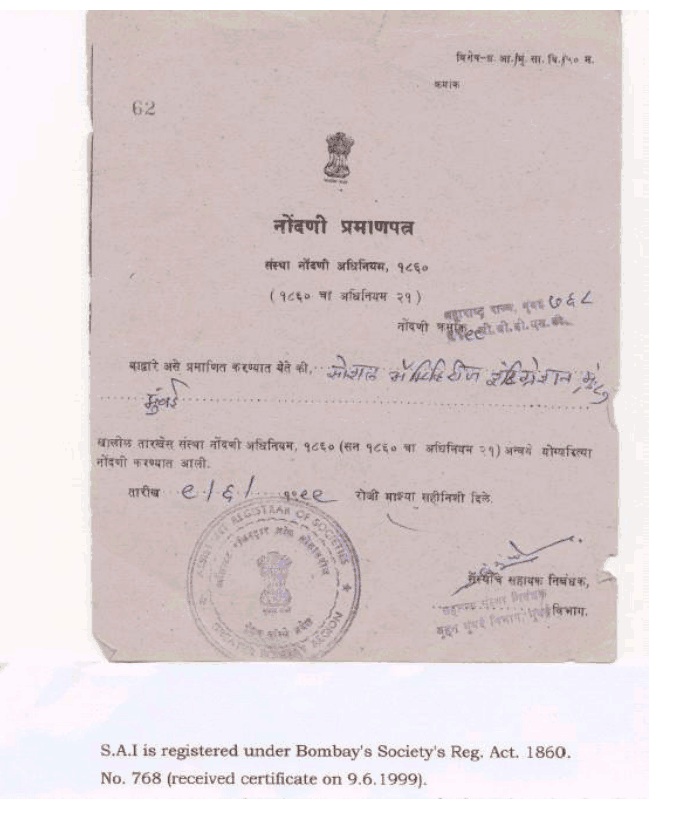 विशेष-प्र. आ./मुं. सा. वि./५० म.
क्रमांक
62
नोंदणी प्रमाणपत्र
संस्था नोंदणी अधिनियम, १८६०
(१८६० चा अधिनियम २१)
महाराष्ट्र राज्य, मुंबई ७६८
नोंदणी क्रमांक जी.बी.बी.एस.डी.
याद्वारे असे प्रमाणित करण्यात येते की, सोशल ॲक्टिव्हिटीज इंटिग्रेशन,
मुंबई
खालील तारखेस संस्था नोंदणी अधिनियम, १८६० (सन १८६० चा अधिनियम २१) अन्वये योग्यरित्या
नोंदणी करण्यात आली.
तारीख ९/६/ १९९९ रोजी माझ्या सहीनिशी दिले.
ASSISTANT REGISTRAR OF SOCIETIES
GREATER BOMBAY REGION
संस्थांचे सहायक निबंधक,
सहायक संस्था निबंधक
बृहन मुंबई विभाग, मुंबई विभाग.
S.A.I is registered under Bombay's Society's Reg. Act. 1860.
No. 768 (received certificate on 9.6.1999).